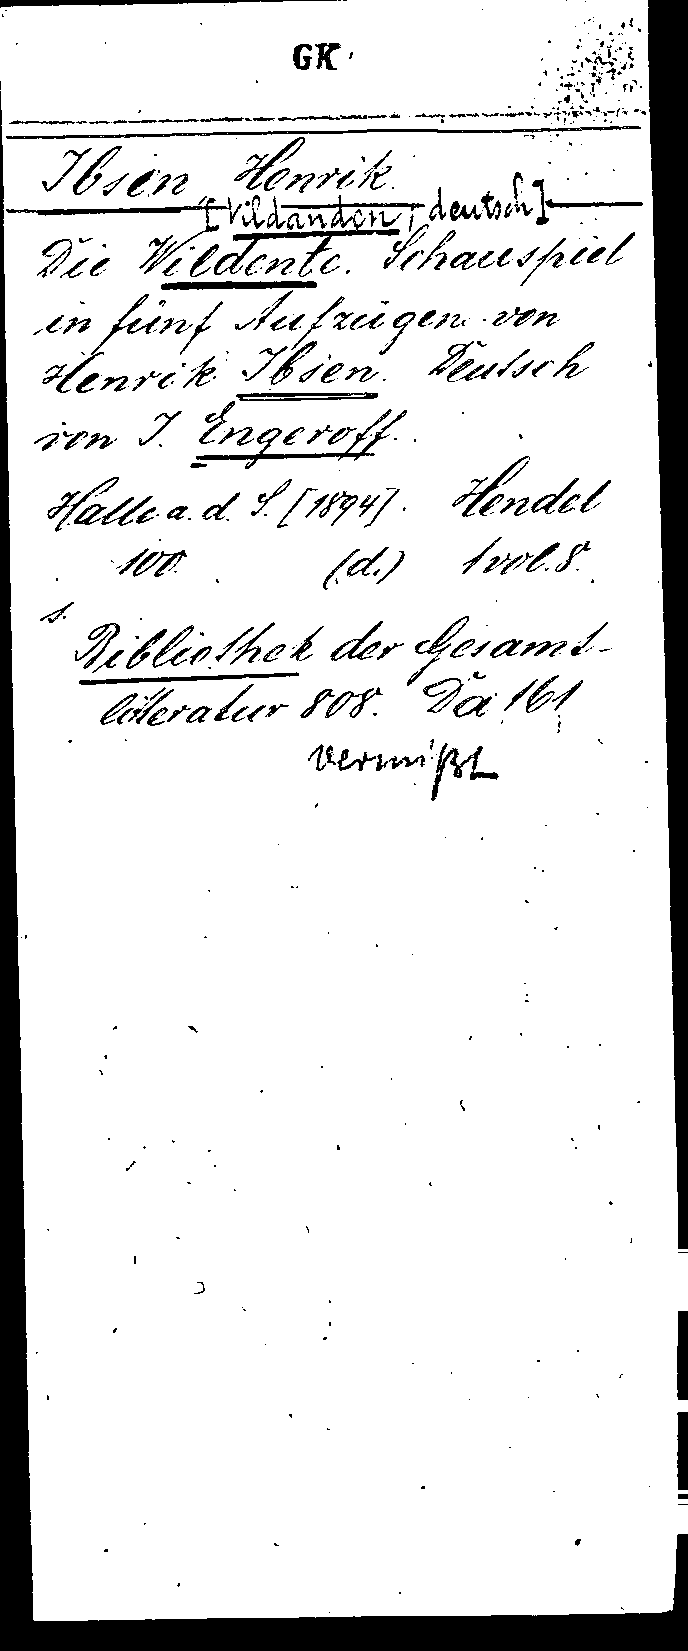 GK
Ibsen Henrik.
[Vildanden, deutsch]
Die Wildente. Schauspiel
in fünf Aufzügen von
Henrik Ibsen. Deutsch
von J. Engeroff.
Halle a. d. S. [1894]. Hendel
100. (d.) 1 vol. 8.
s. Bibliothek der Gesamt-
litteratur 808. Da 161
vermißt